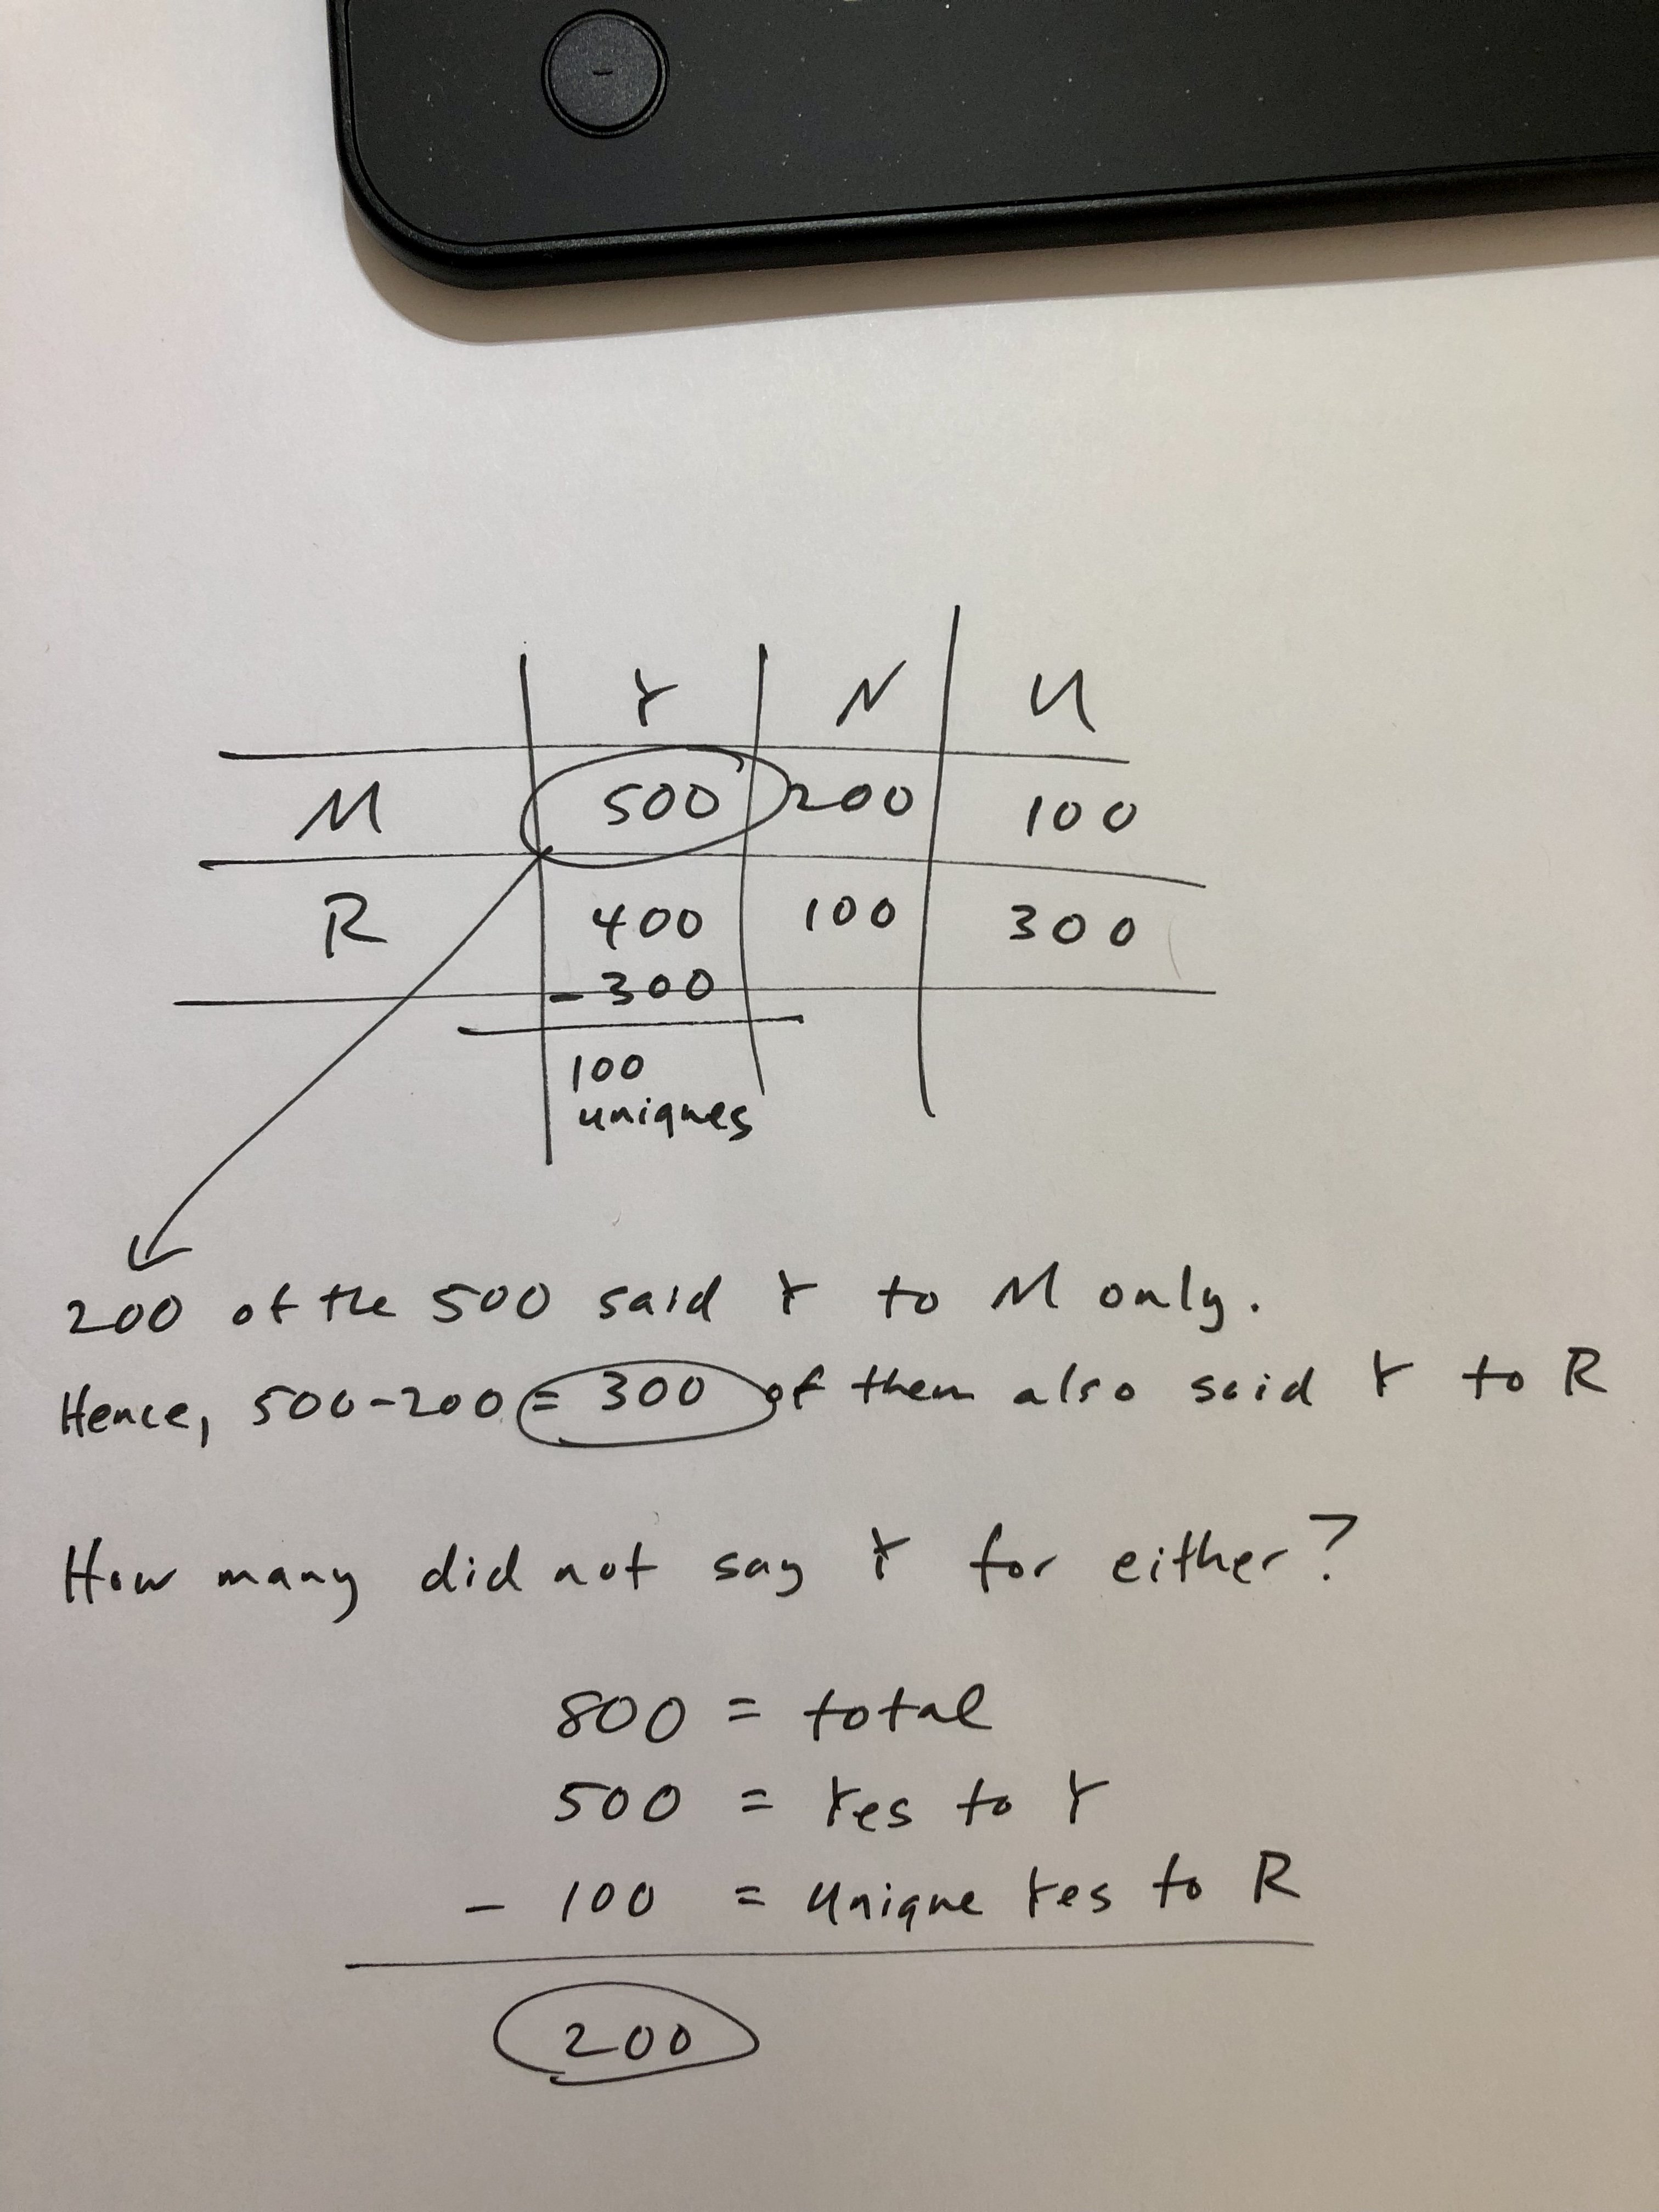 Y N U
M 500 200 100
R 400 100 300
- 300
100
uniques
200 of the 500 said Y to M only.
Hence, 500-200 = 300 of them also said Y to R
How many did not say Y for either?
800 = total
500 = Yes to Y
- 100 = Unique Yes to R
200